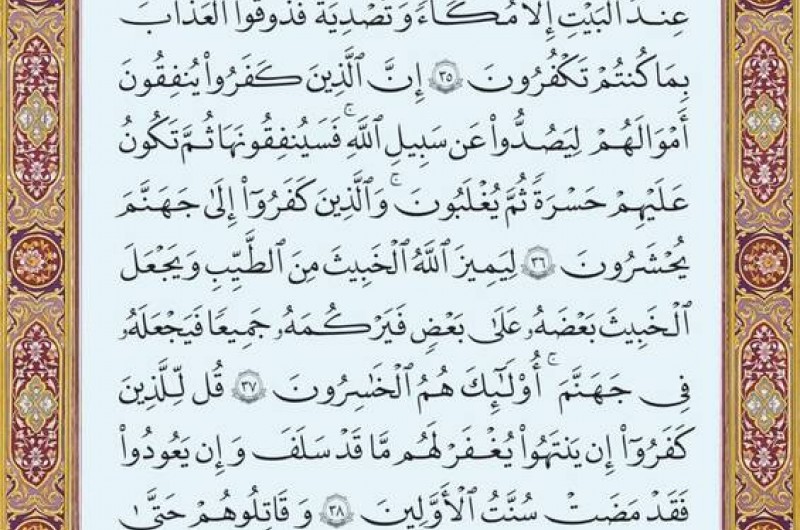 عِندَ ٱلْبَيْتِ إِلَّا مُكَآءً وَتَصْدِيَةً فَذُوقُوا۟ ٱلْعَذَابَ
بِمَا كُنتُمْ تَكْفُرُونَ ٣٥ إِنَّ ٱلَّذِينَ كَفَرُوا۟ يُنفِقُونَ
أَمْوَٰلَهُمْ لِيَصُدُّوا۟ عَن سَبِيلِ ٱللَّهِ ۚ فَسَيُنفِقُونَهَا ثُمَّ تَكُونُ
عَلَيْهِمْ حَسْرَةً ثُمَّ يُغْلَبُونَ ۗ وَٱلَّذِينَ كَفَرُوٓا۟ إِلَىٰ جَهَنَّمَ
يُحْشَرُونَ ٣٦ لِيَمِيزَ ٱللَّهُ ٱلْخَبِيثَ مِنَ ٱلطَّيِّبِ وَيَجْعَلَ
ٱلْخَبِيثَ بَعْضَهُۥ عَلَىٰ بَعْضٍ فَيَرْكُمَهُۥ جَمِيعًا فَيَجْعَلَهُۥ
فِى جَهَنَّمَ ۚ أُو۟لَٰٓئِكَ هُمُ ٱلْخَٰسِرُونَ ٣٧ قُل لِّلَّذِينَ
كَفَرُوٓا۟ إِن يَنتَهُوا۟ يُغْفَرْ لَهُم مَّا قَدْ سَلَفَ وَإِن يَعُودُوا۟
فَقَدْ مَضَتْ سُنَّتُ ٱلْأَوَّلِينَ ٣٨ وَقَٰتِلُوهُمْ حَتَّىٰ